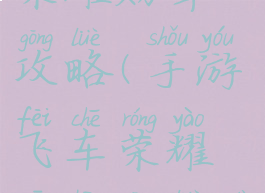 gōng lüè shǒu yóu
攻略(手游
fēi chē róng yào
飞车荣耀